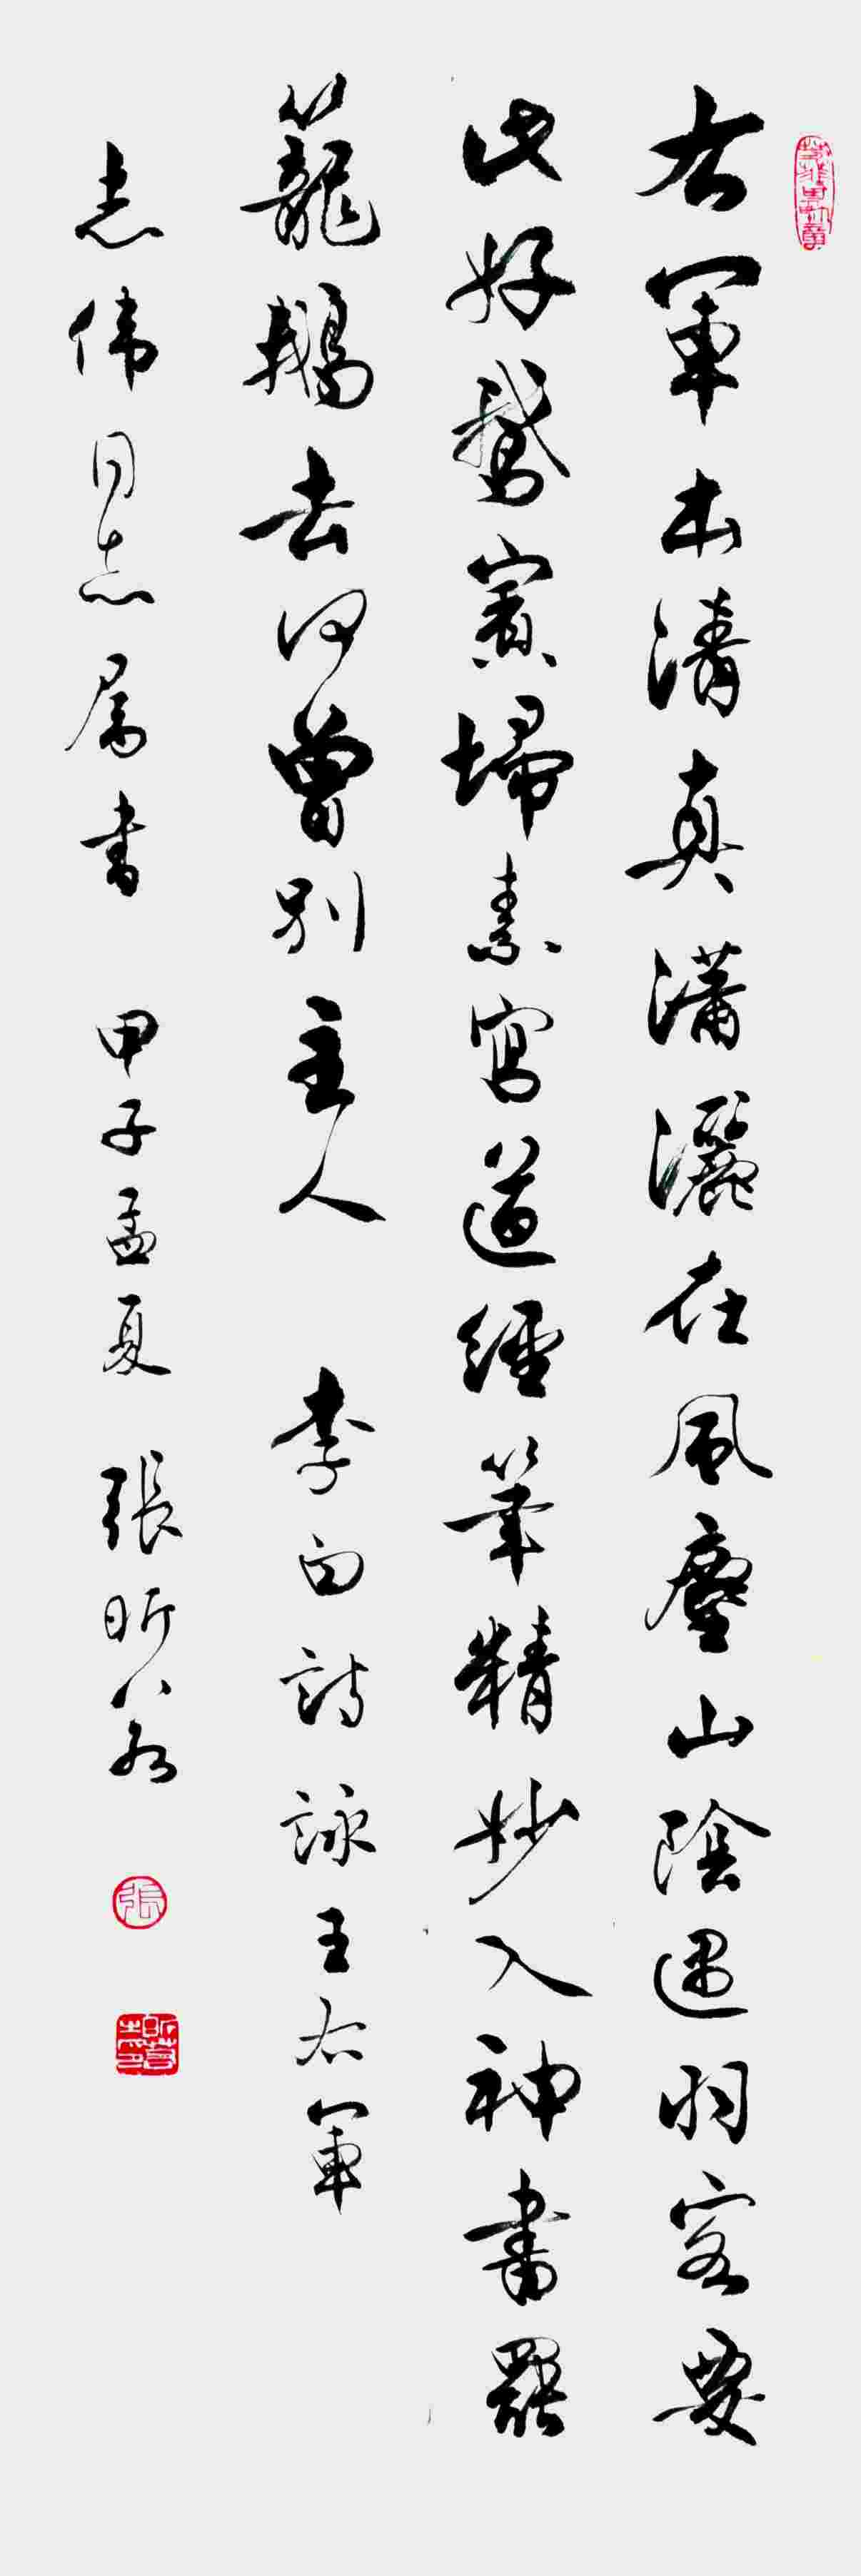 右軍本清真瀟灑在風塵山陰遇羽客要
此好鵝賓掃素寫道經筆精妙入神書罷
籠鵝去何曾別主人 李白詩詠王右軍
志偉同志属书 甲子孟夏 張昕若
張